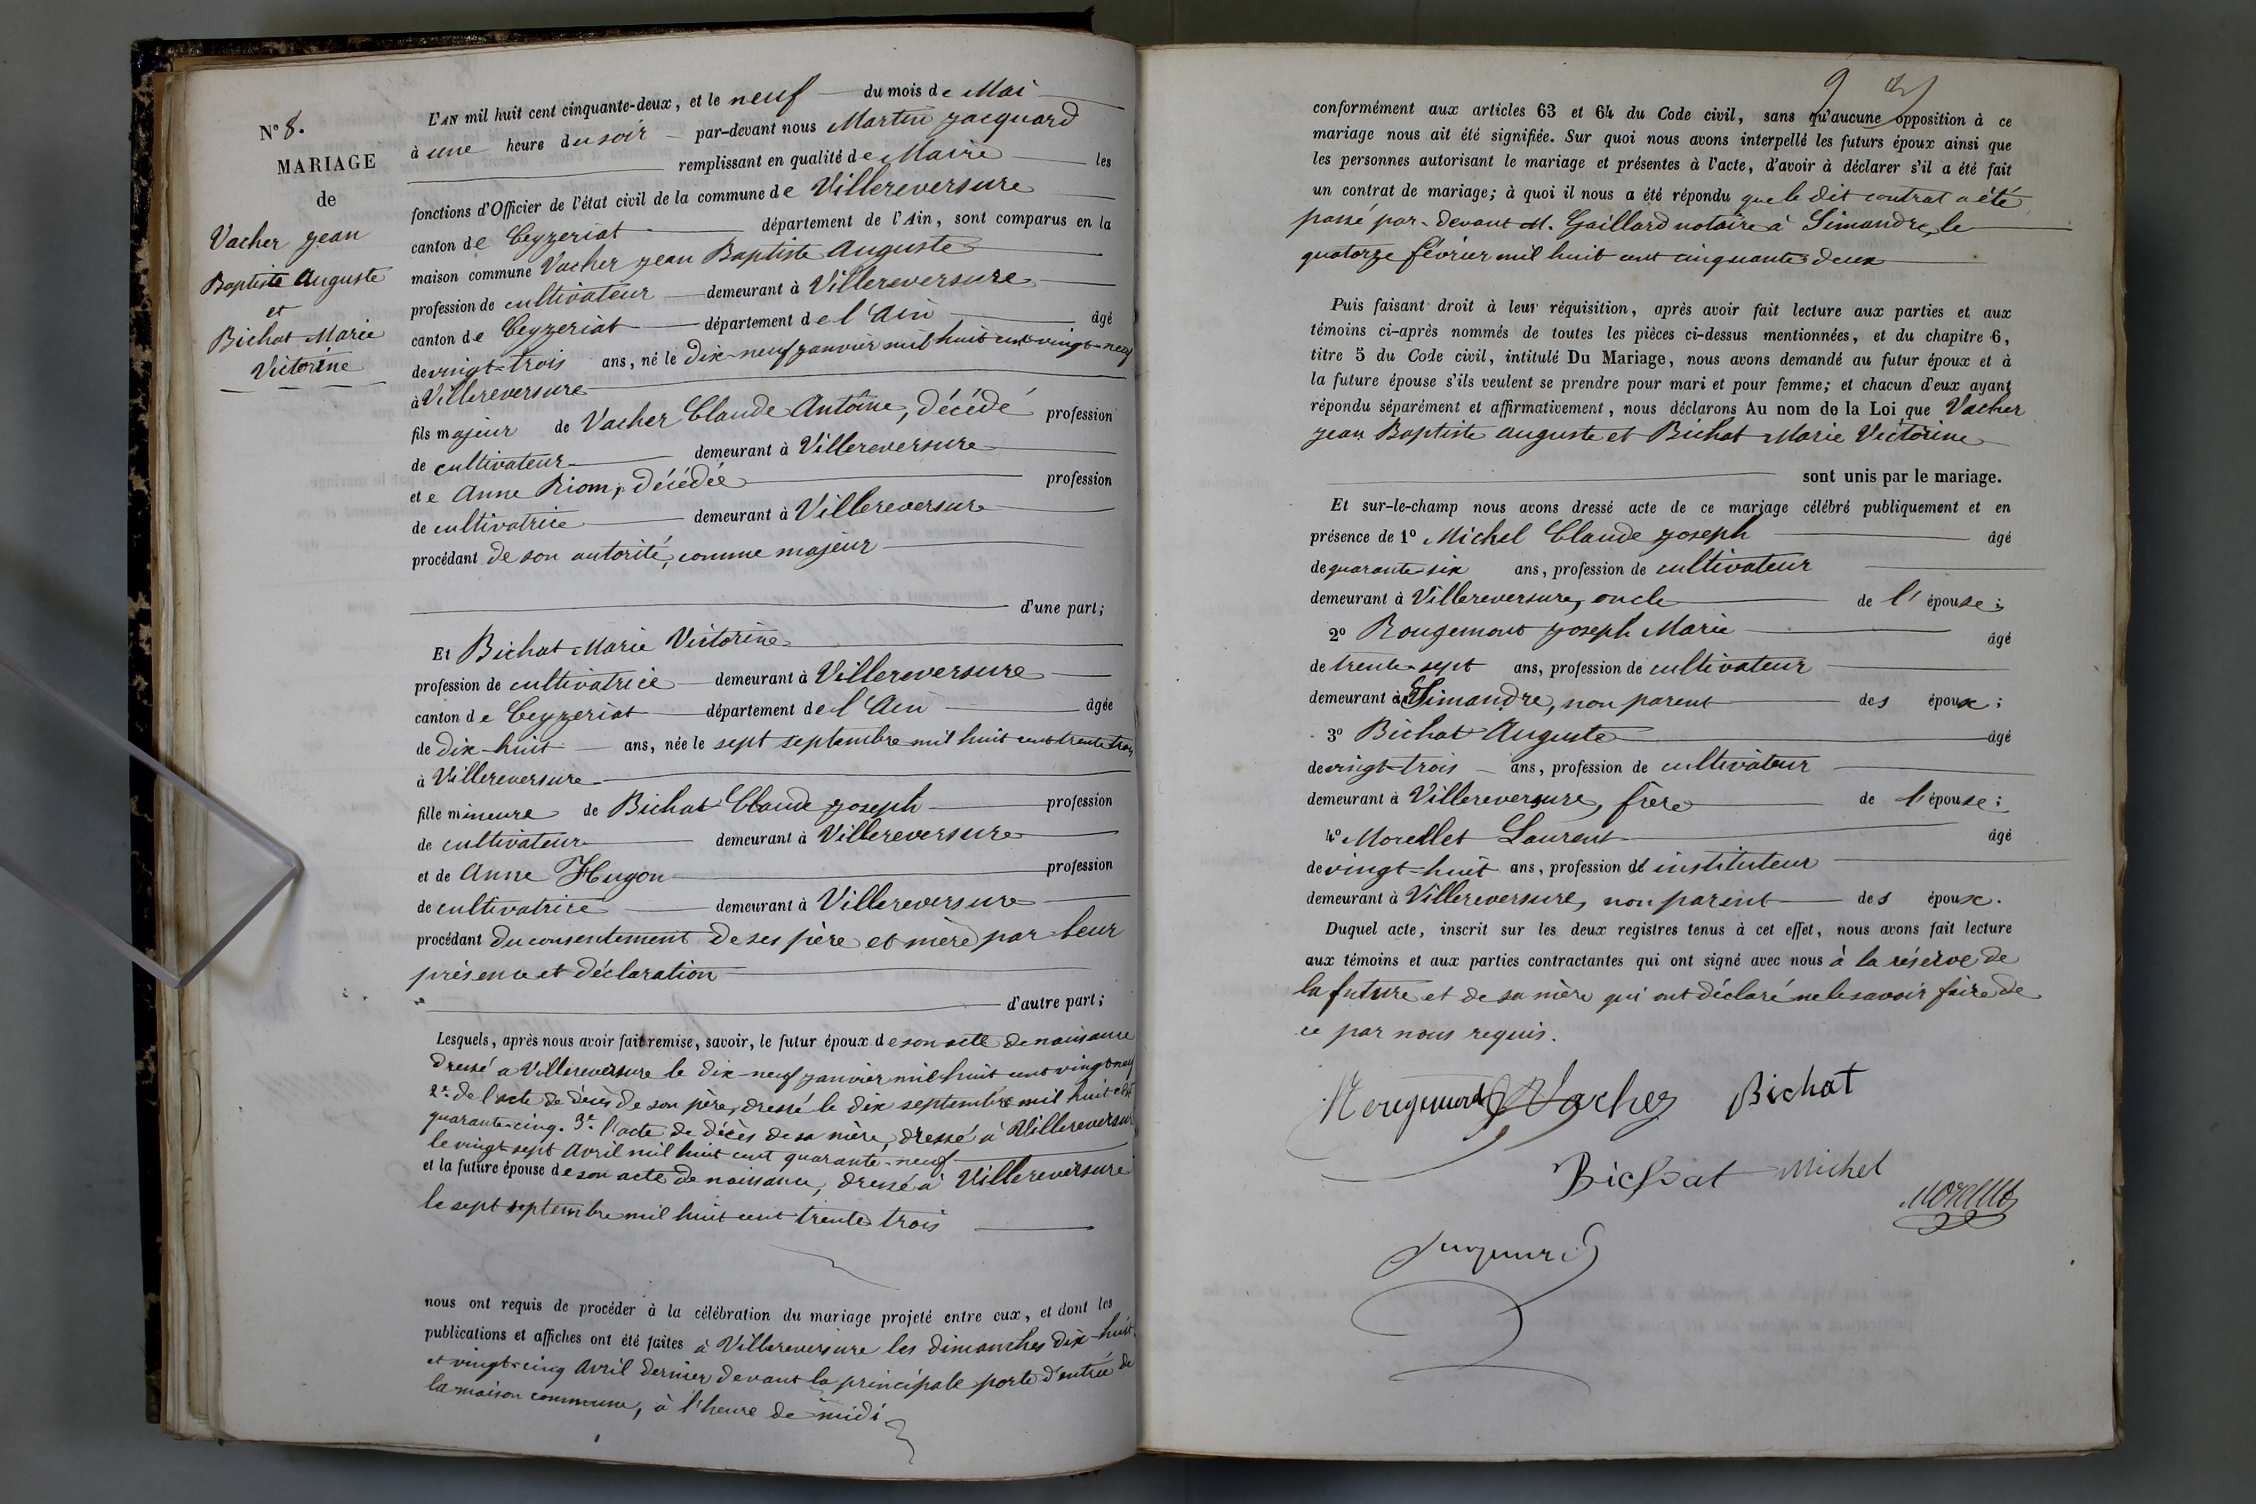 N° 8.
MARIAGE
de
Vacher Jean
Baptiste Auguste
et
Bichat Marie
Victorine
L'AN mil huit cent cinquante-deux, et le neuf du mois de Mai
à une heure du soir par-devant nous Martin Jacquard
remplissant en qualité de Maire les
fonctions d'Officier de l'état civil de la commune de Villereversure
canton de Ceyzeriat département de l'Ain, sont comparus en la
maison commune Vacher Jean Baptiste Auguste
profession de cultivateur demeurant à Villereversure
canton de Ceyzeriat département de l'Ain âgé
de vingt-trois ans, né le dix-neuf janvier mil huit cent vingt-neuf
à Villereversure
fils majeur de Vacher Claude Antoine, décédé profession
de cultivateur demeurant à Villereversure
et e Anne Riom, décédée profession
de cultivatrice demeurant à Villereversure
procédant de son autorité, comme majeur
d'une part;
Et Bichat Marie Victorine
profession de cultivatrice demeurant à Villereversure
canton de Ceyzeriat département de l'Ain âgée
de dix-huit ans, née le sept septembre mil huit cent trente trois
à Villereversure
fille mineure de Bichat Claude Joseph profession
de cultivateur demeurant à Villereversure
et de Anne Hugon profession
de cultivatrice demeurant à Villereversure
procédant du consentement de ses père et mère par leur
présence et déclaration
d'autre part;
Lesquels, après nous avoir fait remise, savoir, le futur époux de son acte de naissance
dressé a Villereversure le dix-neuf janvier mil huit cent vingt neuf
2° de l'acte de décès de son père, dressé le dix septembre mil huit cent
quarante-cinq. 3° l'acte de décès de sa mère, dressé à Villereversure
le vingt sept Avril mil huit cent quarante-neuf
et la future épouse de son acte de naissance, dressé à Villereversure
le sept septembre mil huit cent trente trois
nous ont requis de procéder à la célébration du mariage projeté entre eux, et dont les
publications et affiches ont été faites à Villereversure les dimanches dix-huit
et vingt-cinq Avril dernier devant la principale porte d'entrée de
la maison commune, à l'heure de midi
9
conformément aux articles 63 et 64 du Code civil, sans qu'aucune opposition à ce
mariage nous ait été signifiée. Sur quoi nous avons interpellé les futurs époux ainsi que
les personnes autorisant le mariage et présentes à l'acte, d'avoir à déclarer s'il a été fait
un contrat de mariage; à quoi il nous a été répondu que le dit contrat a été
passé par-devant M. Gaillard notaire à Simandre, le
quatorze février mil huit cent cinquante deux
Puis faisant droit à leur réquisition, après avoir fait lecture aux parties et aux
témoins ci-après nommés de toutes les pièces ci-dessus mentionnées, et du chapitre 6,
titre 5 du Code civil, intitulé Du Mariage, nous avons demandé au futur époux et à
la future épouse s'ils veulent se prendre pour mari et pour femme; et chacun d'eux ayant
répondu séparément et affirmativement, nous déclarons Au nom de la Loi que Vacher
Jean Baptiste Auguste et Bichat Marie Victorine
sont unis par le mariage.
Et sur-le-champ nous avons dressé acte de ce mariage célébré publiquement et en
présence de 1° Michel Claude Joseph âgé
de quarante six ans, profession de cultivateur
demeurant à Villereversure, oncle de l'épouse;
2° Rougemont Joseph Marie âgé
de trente-sept ans, profession de cultivateur
demeurant à Simandre, non parent des époux;
3° Bichat Auguste âgé
de vingt-trois ans, profession de cultivateur
demeurant à Villereversure, frère de l'épouse;
4° Morellet Laurent âgé
de vingt-huit ans, profession de instituteur
demeurant à Villereversure, non parent des époux.
Duquel acte, inscrit sur les deux registres tenus à cet effet, nous avons fait lecture
aux témoins et aux parties contractantes qui ont signé avec nous à la réserve de
la future et de sa mère qui ont déclaré ne le savoir faire de
ce par nous requis.
Rougemont Vacher Bichat
Bichat Michel
Morellet
Jacquard